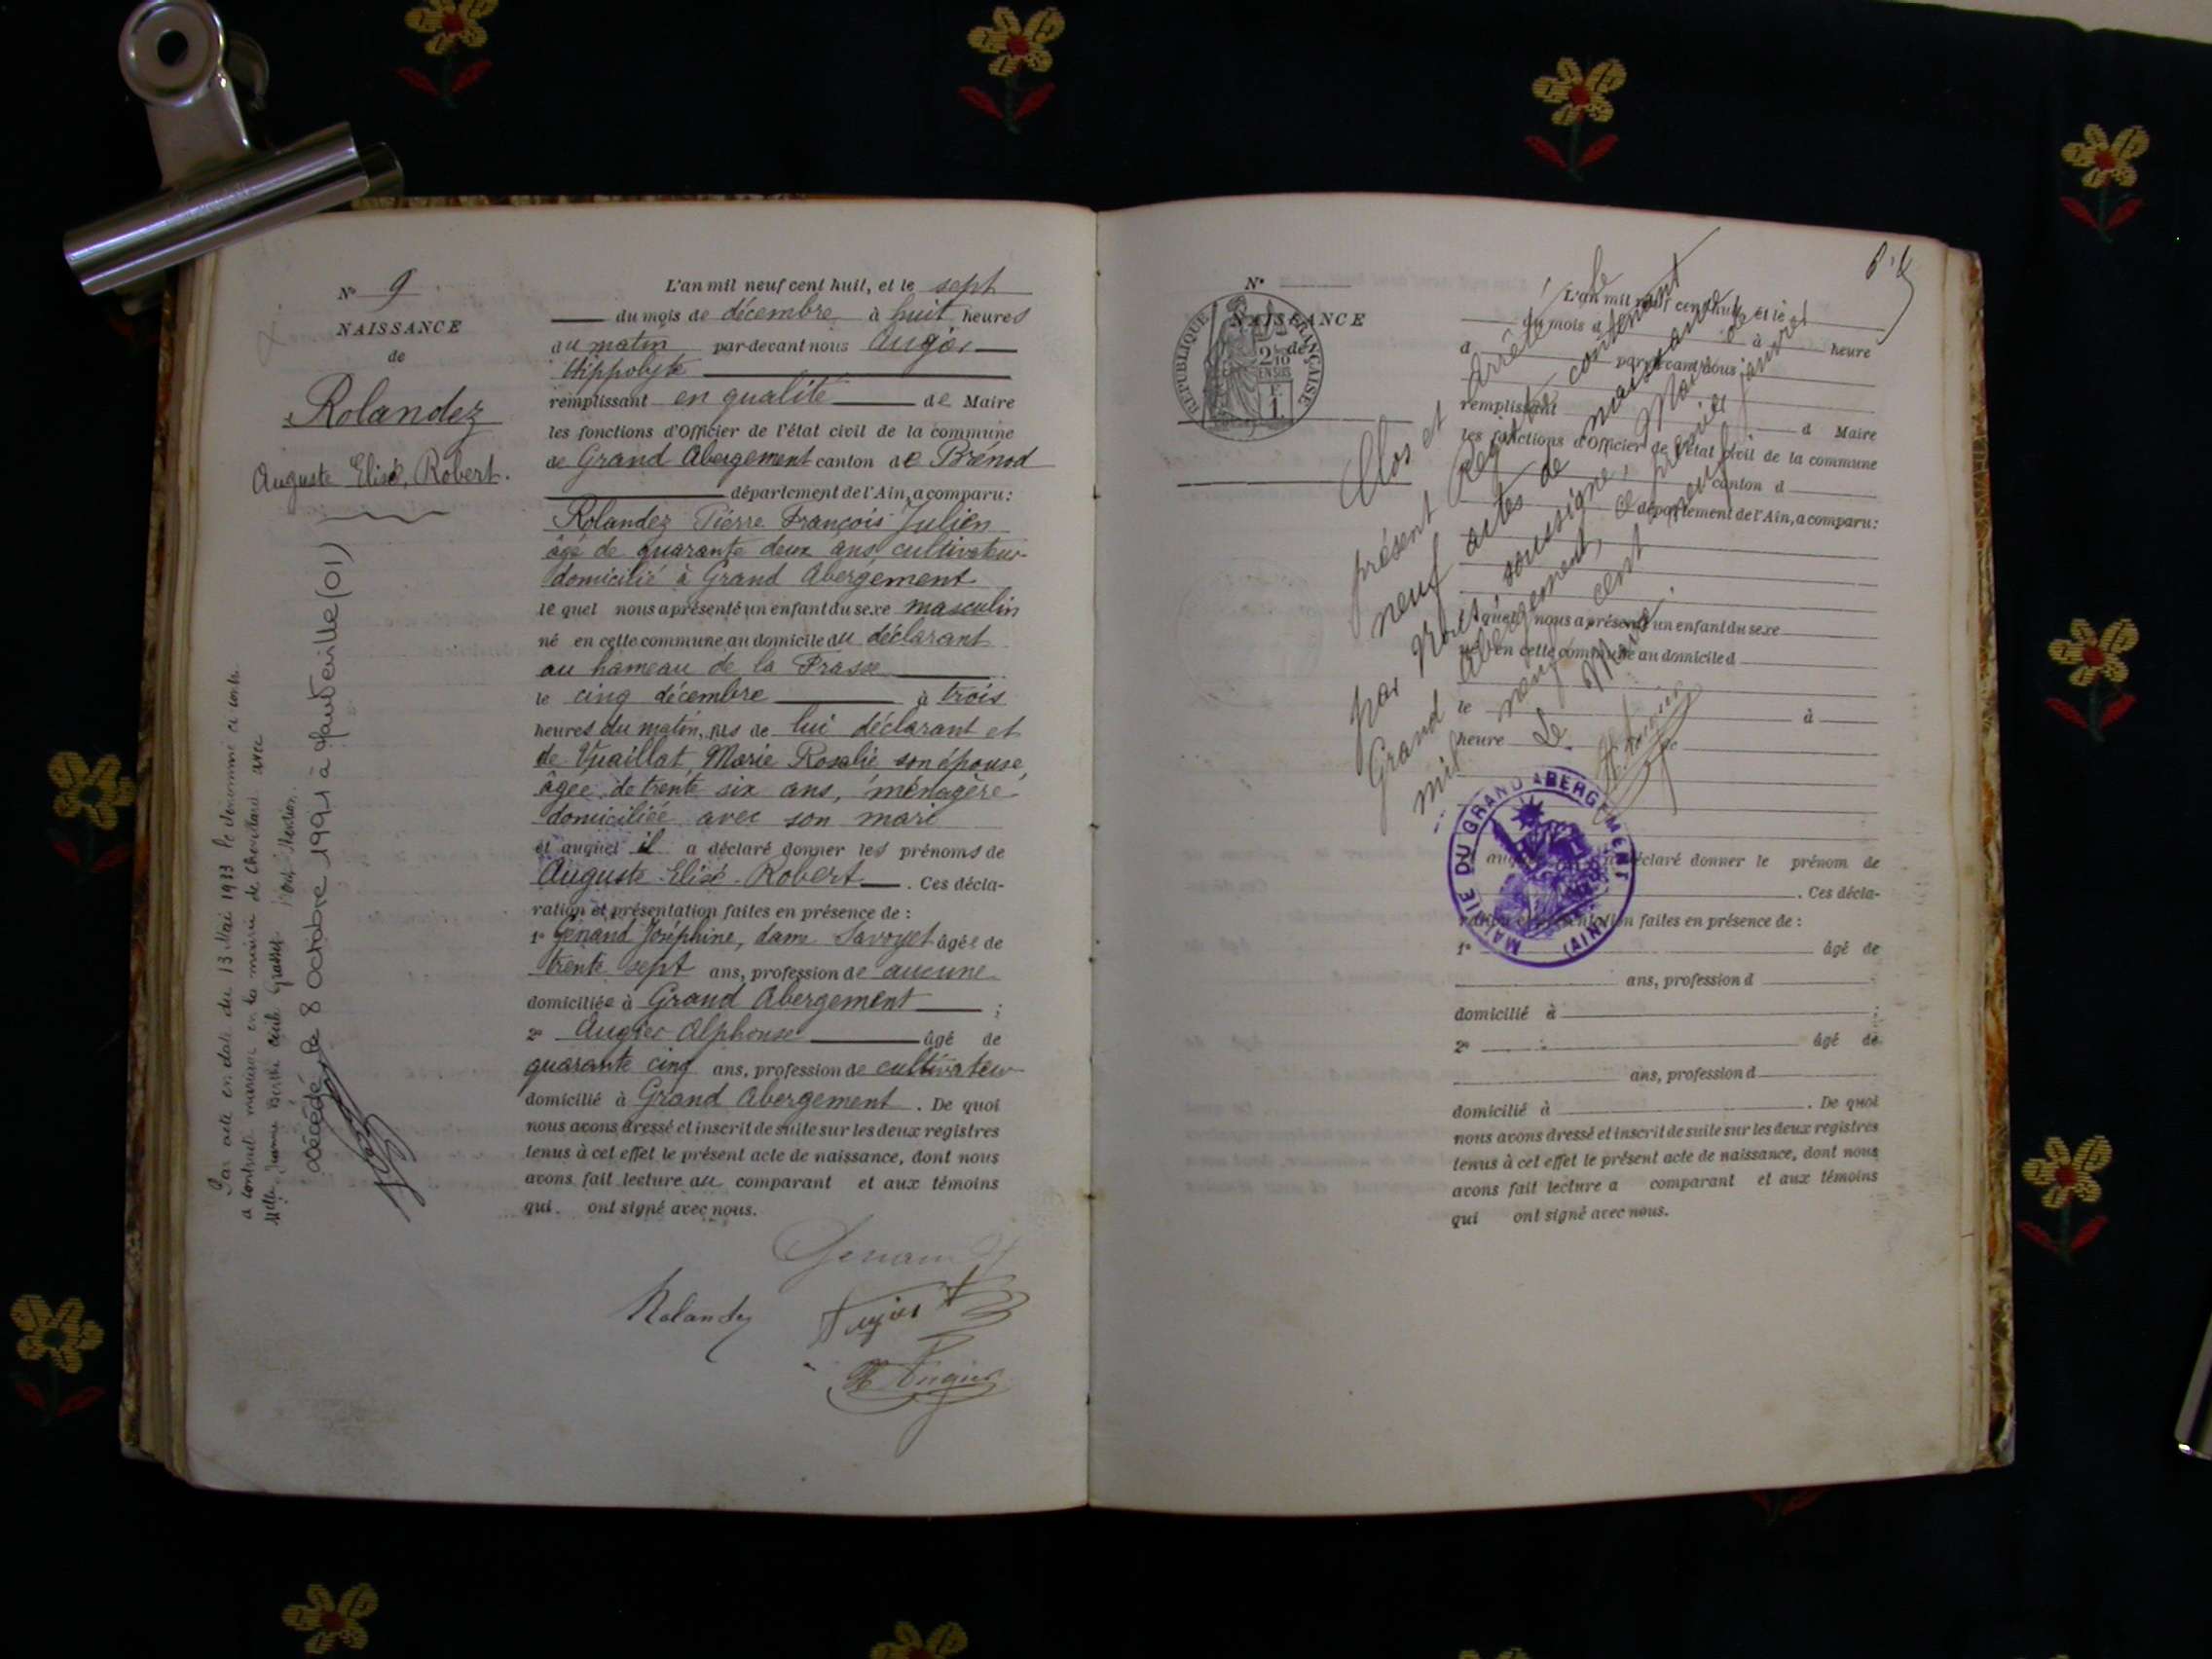 N° 9
NAISSANCE
de
Rolandez
Auguste Elisé, Robert.
Par acte en date du 13 Mai 1933 le dénommé ci contre
a contracté mariage en la mairie de avec
Melle Jeanne Berthe
décédé le 8 octobre 1991 à Hauteville (01)
L'an mil neuf cent huit, et le sept
du mois de décembre à huit heures
du matin par-devant nous Augier
Hippolyte
remplissant en qualité de Maire
les fonctions d'Officier de l'état civil de la commune
de Grand Abergement canton de Brénod
département de l'Ain, a comparu:
Rolandez Pierre François Julien
âgé de quarante deux ans cultivateur
domicilié à Grand Abergement
lequel nous a présenté un enfant du sexe masculin
né en cette commune au domicile du déclarant
au hameau de la Prasse
le cinq décembre à trois
heures du matin, fils de lui déclarant et
de Vuaillat, Marie Rosalie son épouse,
âgée de trente six ans, ménagère
domiciliée avec son mari
et auquel il a déclaré donner les prénoms de
Auguste Elisé Robert. Ces décla-
ration et présentation faites en présence de :
1° Genand Joséphine, dame Savoyet âgée de
trente sept ans, profession de aucune
domiciliée à Grand Abergement ;
2° Augier Alphonse âgé de
quarante cinq ans, profession de cultivateur
domicilié à Grand Abergement. De quoi
nous avons dressé et inscrit de suite sur les deux registres
tenus à cet effet le présent acte de naissance, dont nous
avons fait lecture au comparant et aux témoins
qui ont signé avec nous.
Genand
Rolandez Augier
H. Augier
N°
NAISSANCE
de
RÉPUBLIQUE FRANÇAISE
2/10 EN SUS
1F
Clos et Arrêté le
présent Registre contenant
neuf actes de naissance
par Nous, soussigné, Maire de
Grand Abergement, ce premier janvier
mil neuf cent neuf
Le Maire.
H. Augier
MAIRIE DU GRAND ABERGEMENT
(AIN)
L'an mil neuf cent huit, et le
du mois d à heure
d par-devant nous
remplissant d Maire
les fonctions d'Officier de l'état civil de la commune
canton d
département de l'Ain, a comparu:
quel nous a présenté un enfant du sexe
né en cette commune au domicile d
le à
heure de
auquel a déclaré donner le prénom de
. Ces décla-
ration et présentation faites en présence de :
1° âgé de
ans, profession d
domicilié à ;
2° âgé de
ans, profession d
domicilié à . De quoi
nous avons dressé et inscrit de suite sur les deux registres
tenus à cet effet le présent acte de naissance, dont nous
avons fait lecture a comparant et aux témoins
qui ont signé avec nous.